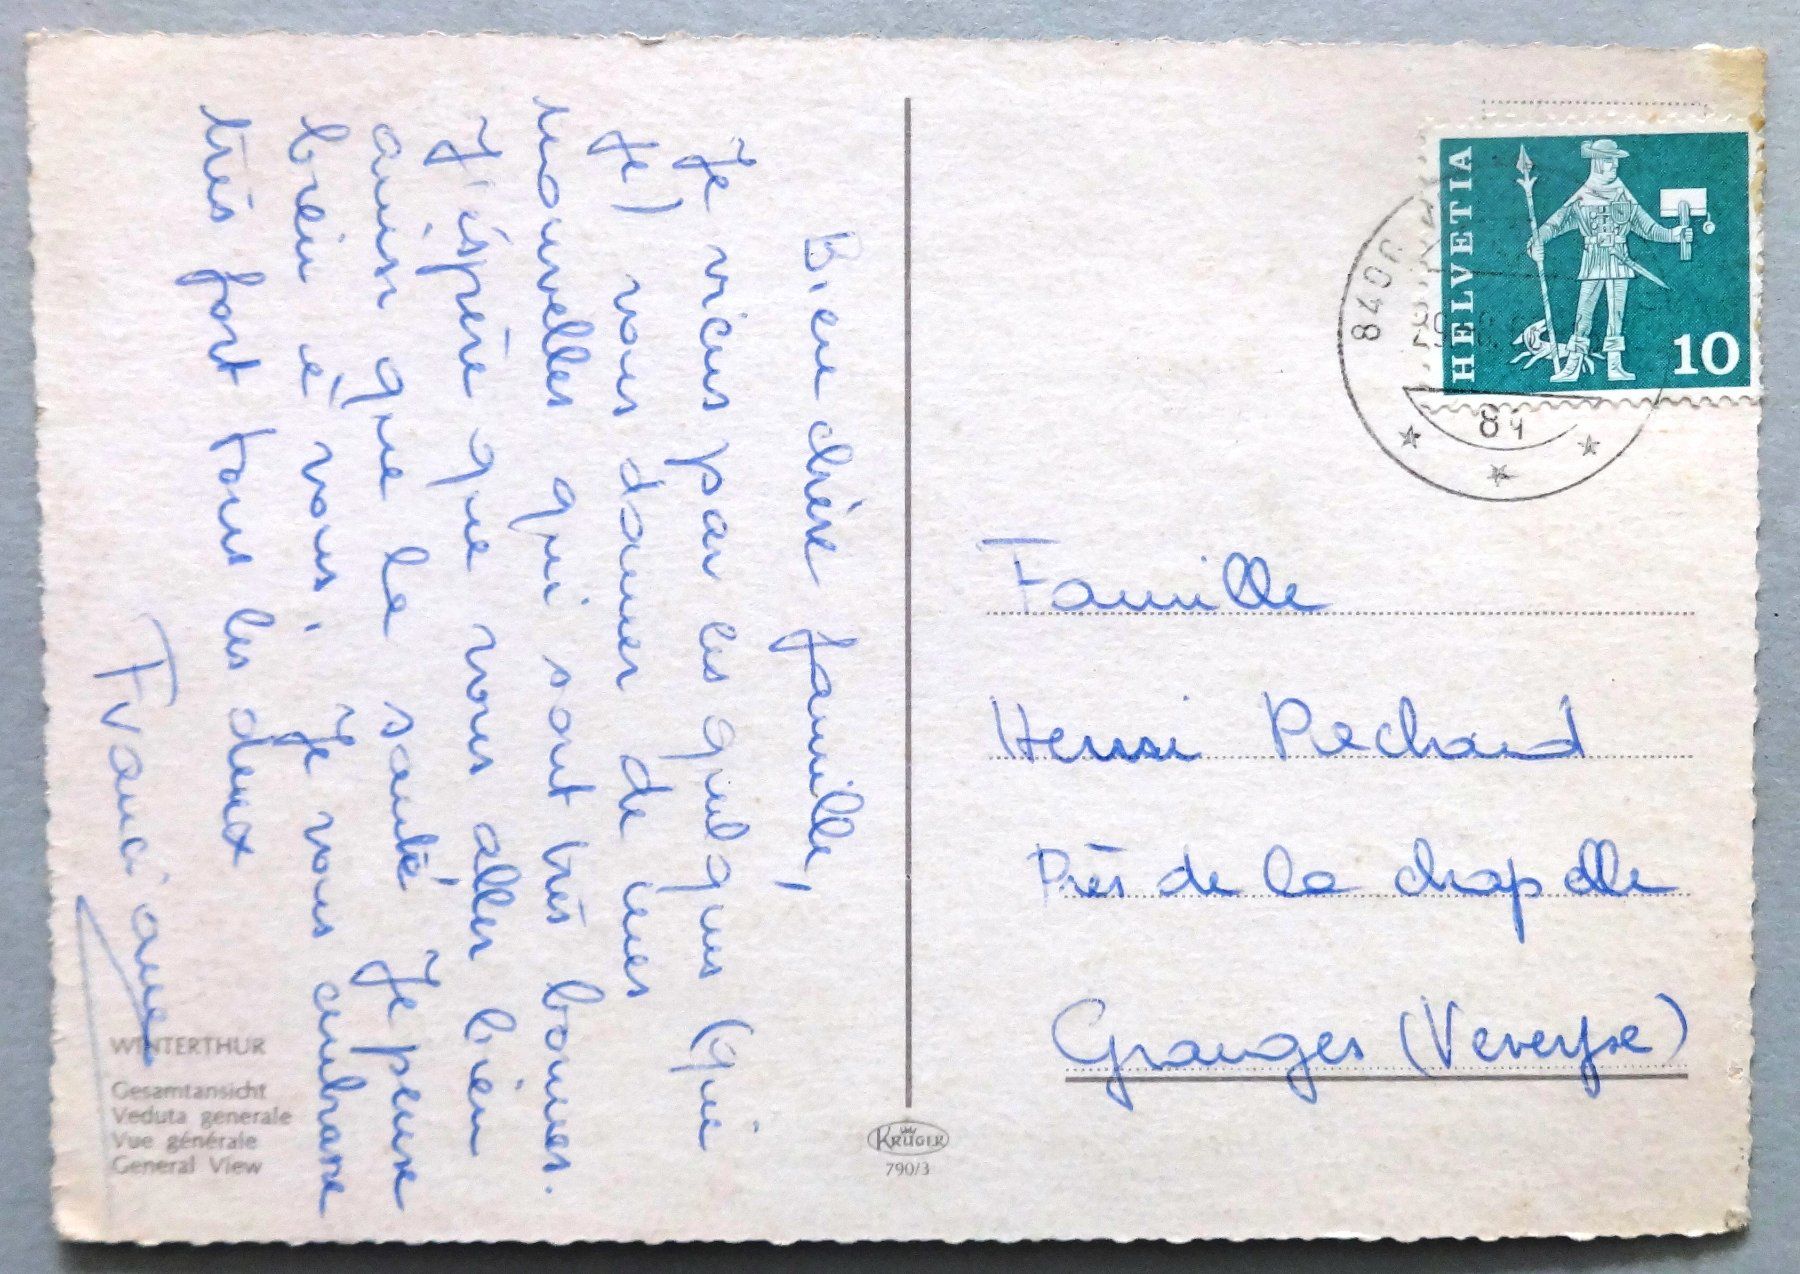 Bien chère famille,
Je viens par les quelques (qui
je) vous donner de mes
nouvelles qui sont très bonnes.
J'éspère que vous aller bien
ainsi que la santé. Je pense
bien à vous. Je vous embrasse
très fort tous les deux
Franci ane
WINTERTHUR
Gesamtansicht
Veduta generale
Vue générale
General View
KRÜGER
790/3
HELVETIA
10
8400
8y
Famille
Henri Pachoud
Près de la chapelle
Granges (Veveyse)